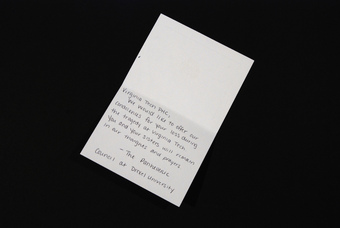 Virginia Tech PHC,
We would like to offer our
condolences for your loss during
the tragedy at Virginia Tech.
You and your sisters will remain
in our thoughts and prayers
- The Panhellenic
Council at Drury University